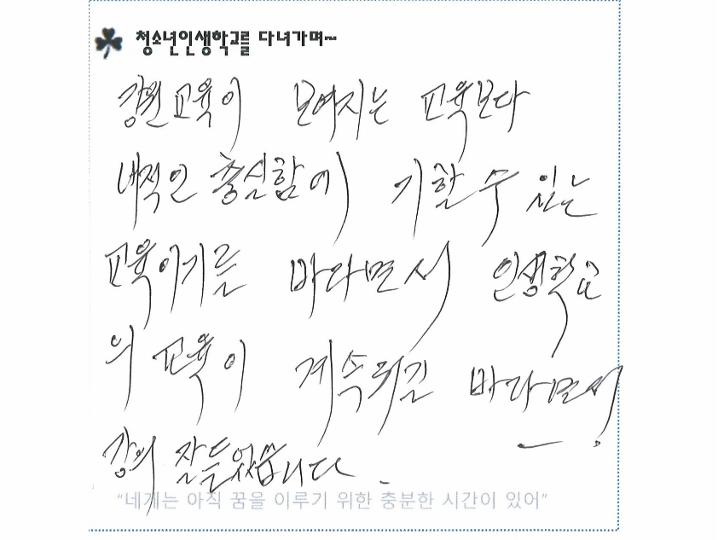 청소년인생학교를 다녀가며~
강원교육이 보여지는 교육보다
내적인 충실함에 기할 수 있는
교육이기를 바라면서 인생학교
의 교육이 계속되길 바라면서!
강의 잘들었습니다.
"네게는 아직 꿈을 이루기 위한 충분한 시간이 있어"